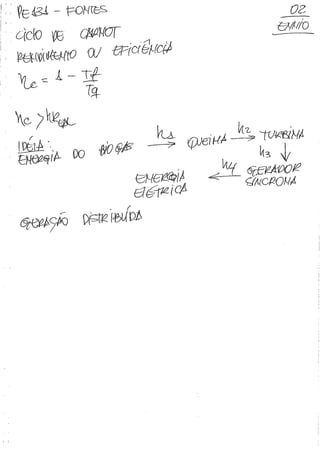 PE131 - FONTES
02
ENNIO
CICLO DE CARNOT
RENDIMENTO OU EFICIÊNCIA
ηc = 1 - Tf/Tq
ηc > ηREAL
IDÉIA:
ENERGIA DO BIOGÁS η1 → QUEIMA η2 → TURBINA
η3 ↓
η4 ← GERADOR SÍNCRONA
ENERGIA ELÉTRICA
GERAÇÃO DISTRIBUÍDA